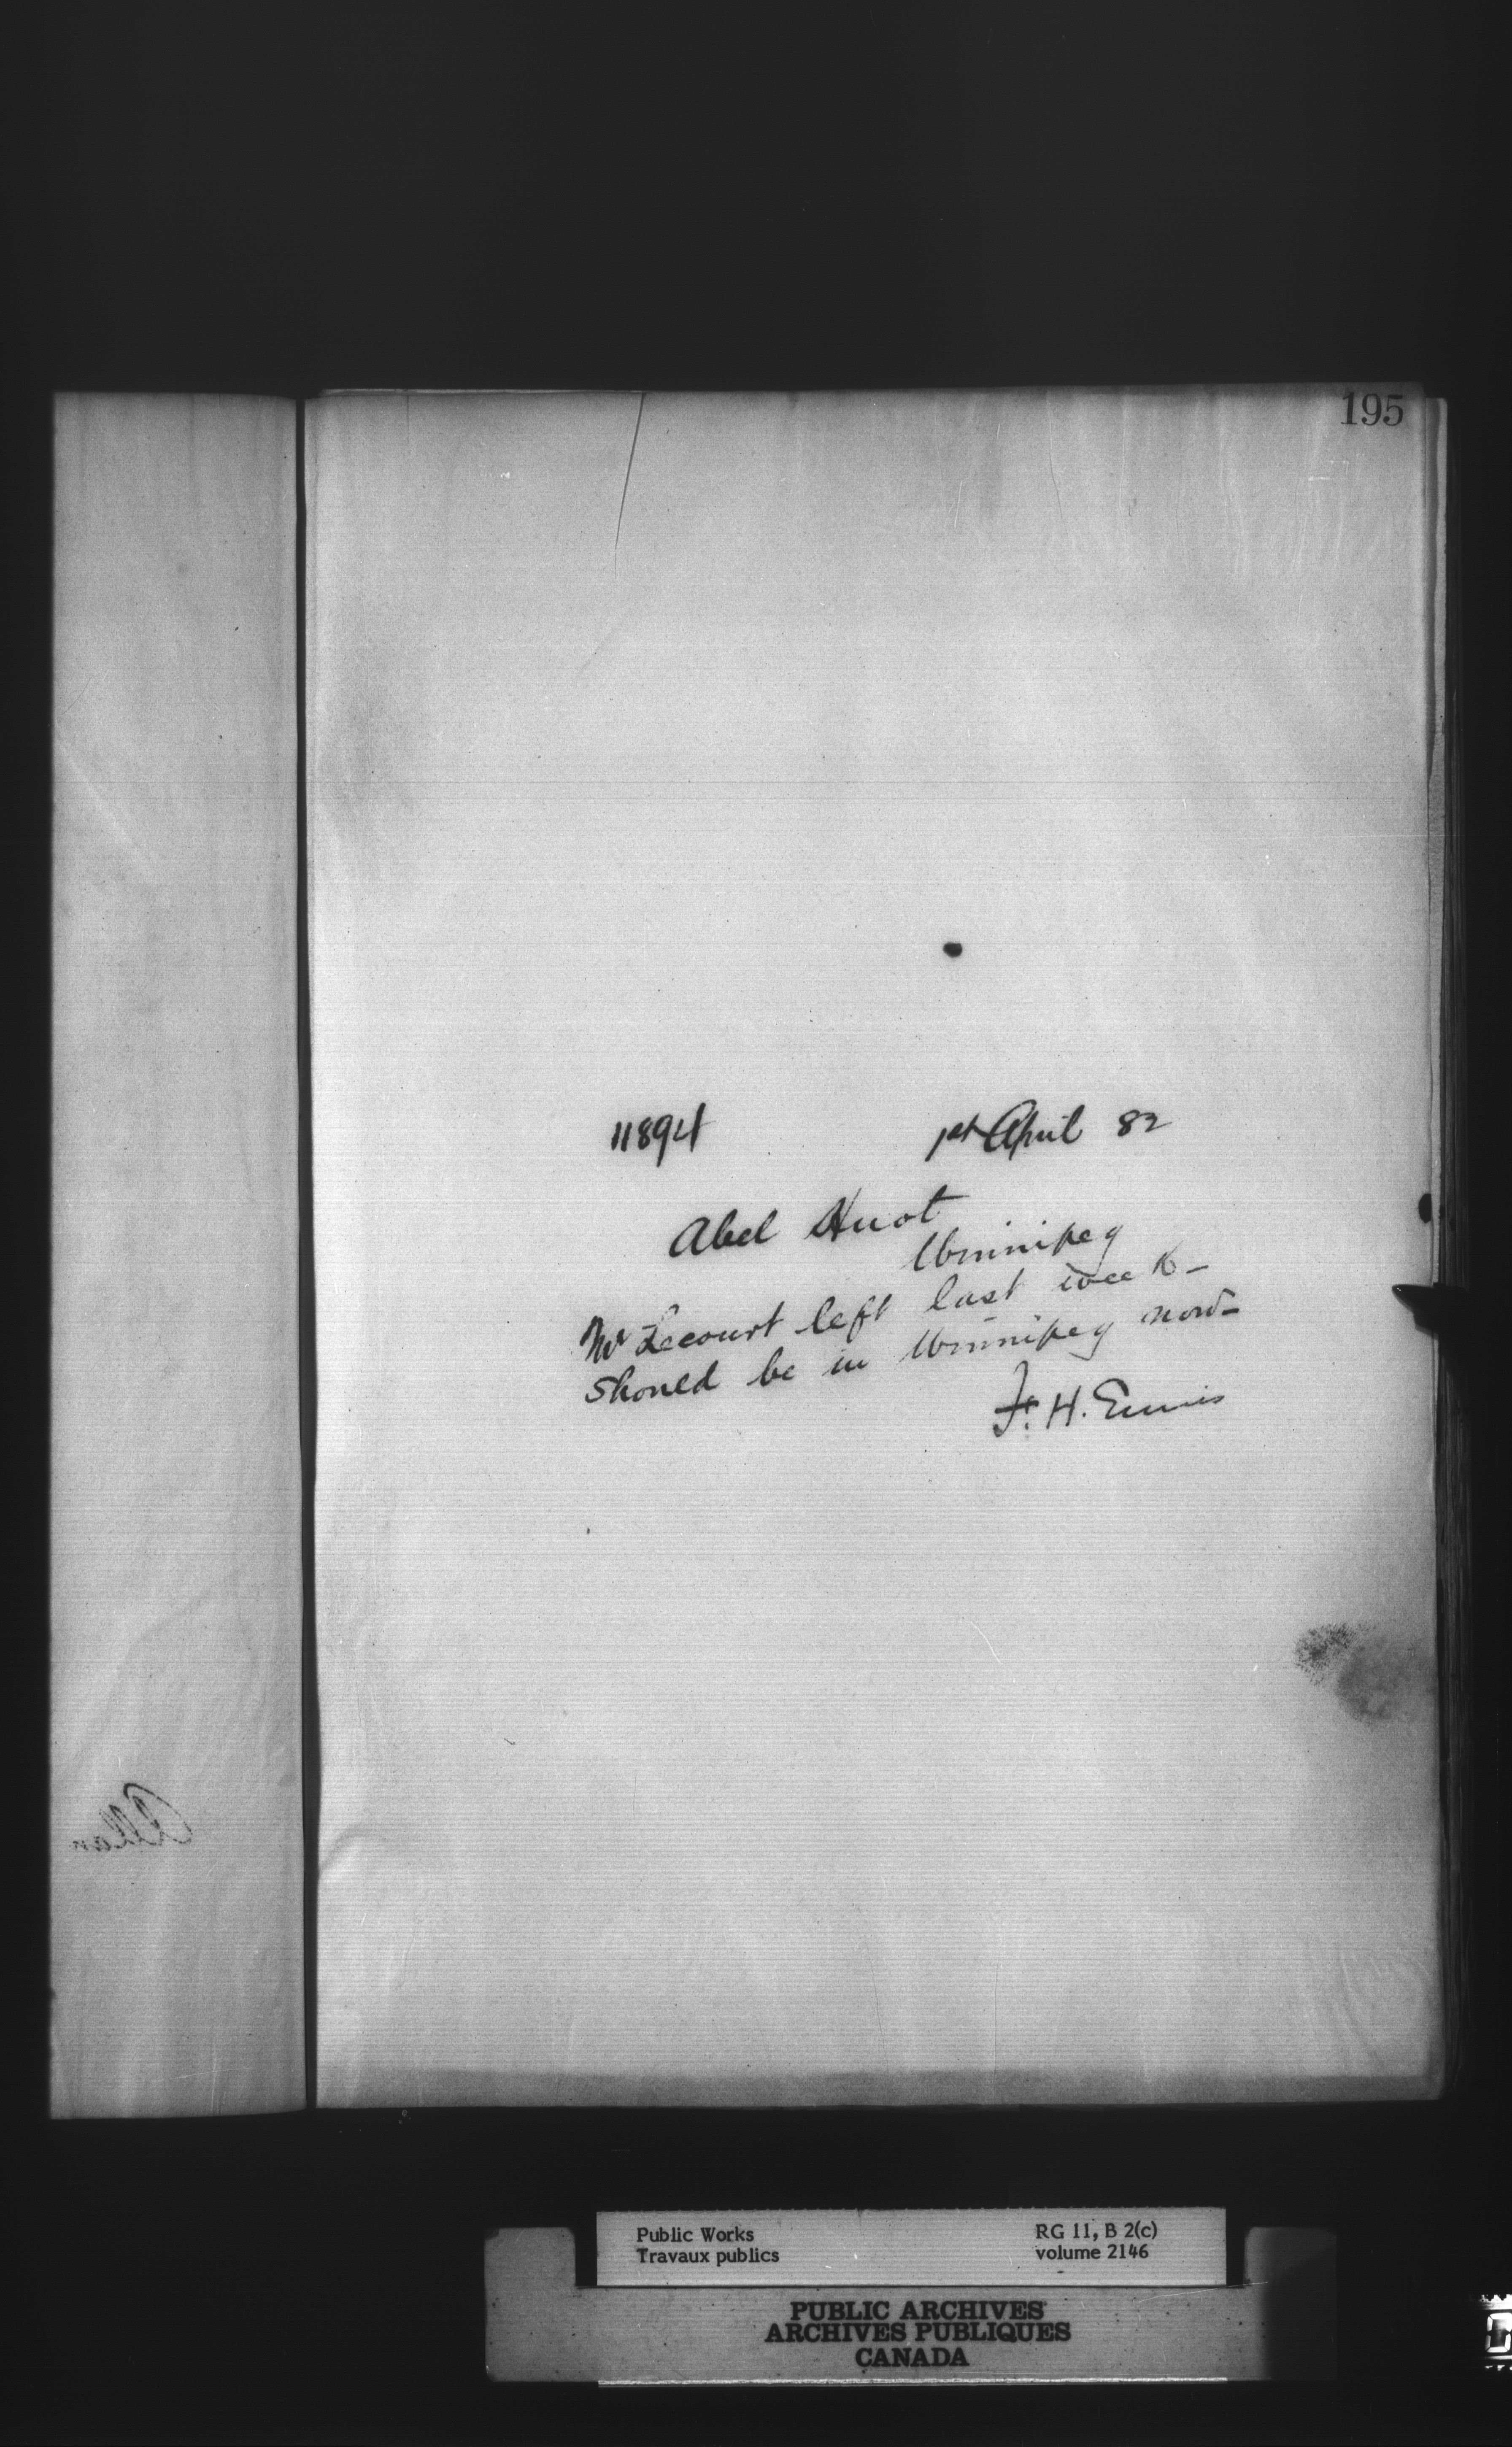 195
11894 1st April 82
Abel Huot
Winnipeg
Mr Lecourt left last week -
should be in Winnipeg now -
F. H. Ennis
Allan
Public Works
Travaux publics
RG 11, B 2(c)
volume 2146
PUBLIC ARCHIVES
ARCHIVES PUBLIQUES
CANADA